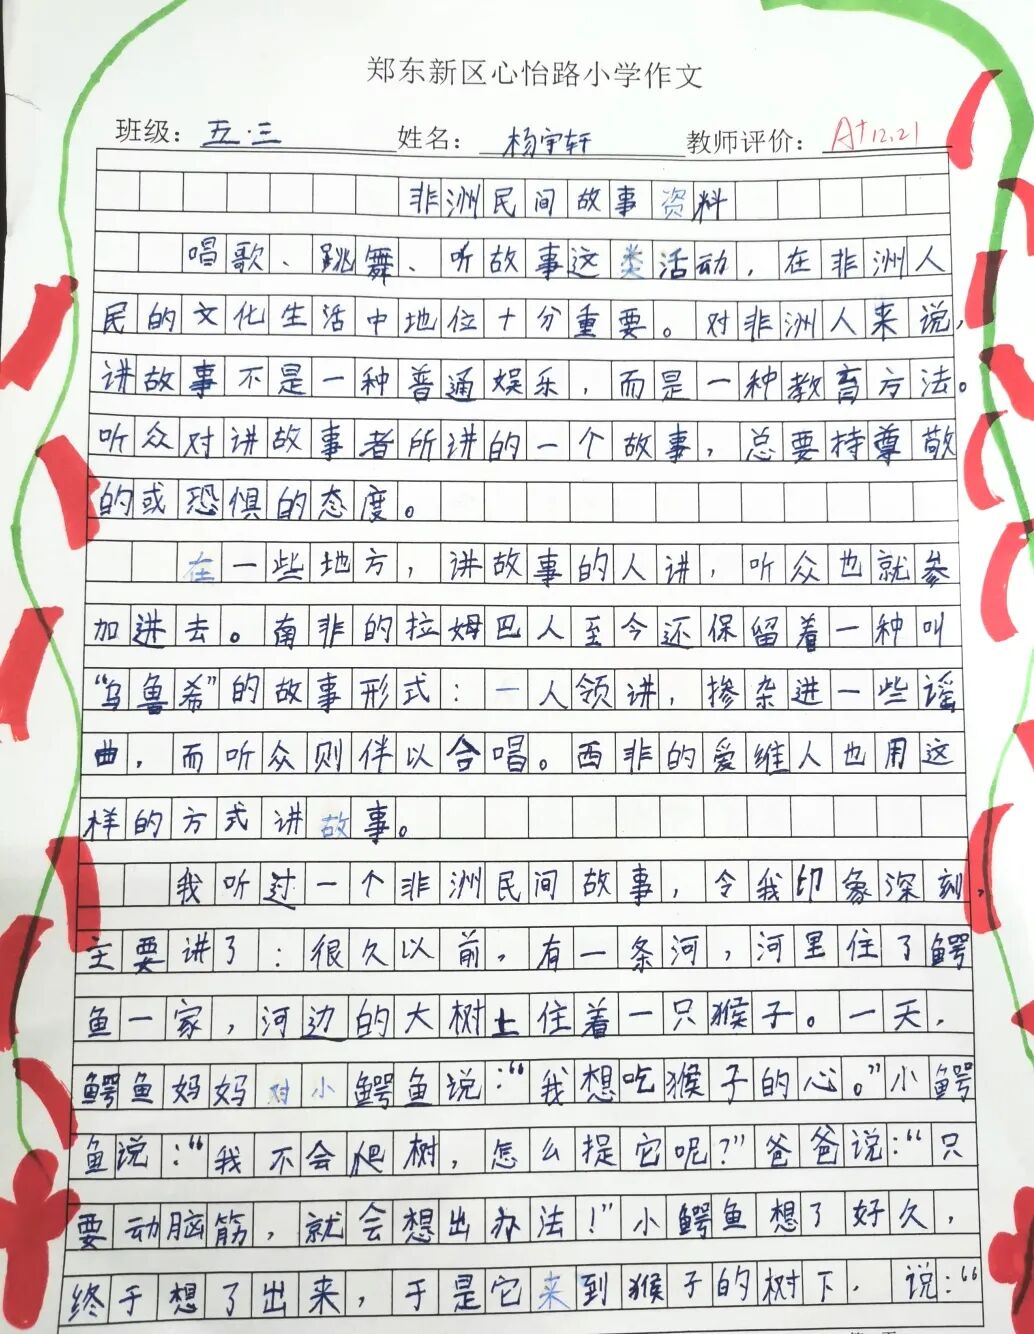 郑东新区心怡路小学作文
班级：五.三 姓名：杨宇轩 教师评价：A+ 12.21
非洲民间故事资料
唱歌、跳舞、听故事这类活动，在非洲人
民的文化生活中地位十分重要。对非洲人来说，
讲故事不是一种普通娱乐，而是一种教育方法。
听众对讲故事者所讲的一个故事，总要持尊敬
的或恐惧的态度。
在一些地方，讲故事的人讲，听众也就参
加进去。南非的拉姆巴人至今还保留着一种叫
“乌鲁希”的故事形式：一人领讲，掺杂进一些谣
曲，而听众则伴以合唱。西非的爱维人也用这
样的方式讲故事。
我听过一个非洲民间故事，令我印象深刻，
主要讲了：很久以前，有一条河，河里住了鳄
鱼一家，河边的大树上住着一只猴子。一天，
鳄鱼妈妈对小鳄鱼说：“我想吃猴子的心。”小鳄
鱼说：“我不会爬树，怎么捉它呢？”爸爸说：“只
要动脑筋，就会想出办法！”小鳄鱼想了好久，
终于想了出来，于是它来到猴子的树下，说：“